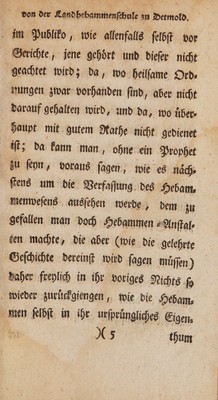 von der Landhebammenschule zu Detmold.
im Publiko, wie allenfalls selbst vor
Gerichte, jene gehört und dieser nicht
geachtet wird; da, wo heilsame Ord-
nungen zwar vorhanden sind, aber nicht
darauf gehalten wird, und da, wo über-
haupt mit gutem Rathe nicht gedienet
ist; da kann man, ohne ein Prophet
zu seyn, voraus sagen, wie es näch-
stens um die Verfassung des Hebam-
menwesens aussehen werde, dem zu
gefallen man doch Hebammen-Anstal-
ten machte, die aber (wie die gelehrte
Geschichte dereinst wird sagen müssen)
daher freylich in ihr voriges Nichts so
wieder zurückgiengen, wie die Hebam-
men selbst in ihr ursprüngliches Eigen-
)( 5 thum